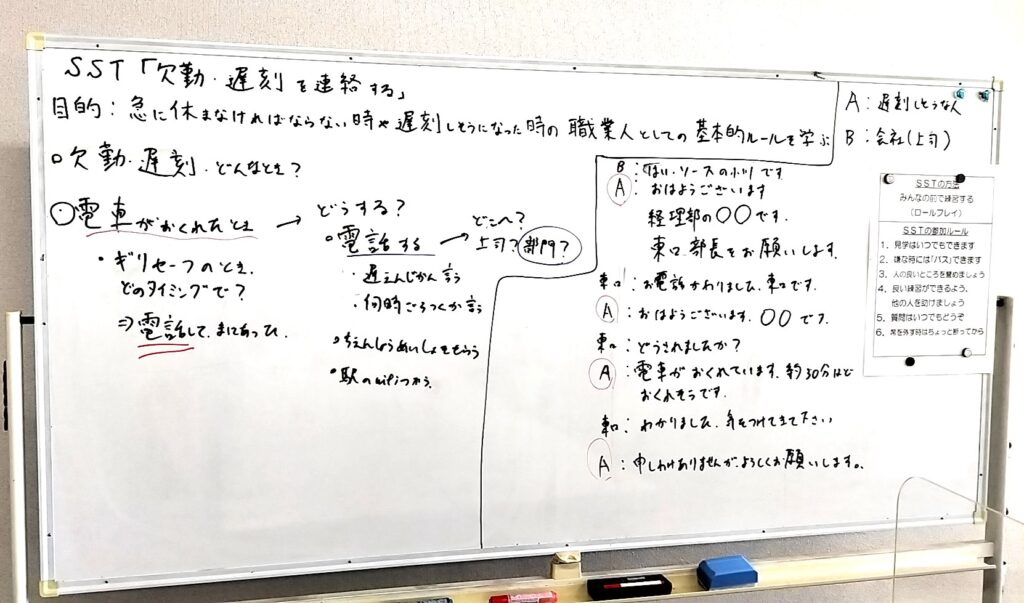 SST「欠勤・遅刻を連絡する」
目的：急に休まなければならない時や遅刻しそうになった時の職業人としての基本的ルールを学ぶ
欠勤・遅刻・どんなとき？
電車がおくれたとき → どうする？
・電話する → どこへ？
上司？部門？
・遅えんじかん言う
・何時ごろつくか言う
・ちえんしょうめいしょをもらう
・駅のwifiつかう
・ギリセーフのとき、
どのタイミングで？
⇒電話して、まにあった。
A：遅刻しそうな人
B：会社(上司)
B：はい、ソースの小川です
A：おはようございます
経理部の〇〇です。
東口部長をお願いします。
東口：お電話かわりました、東口です。
A：おはようございます。〇〇です。
東口：どうされましたか？
A：電車がおくれています。約30分ほど
おくれそうです。
東口：わかりました、気をつけてきて下さい
A：申しわけありませんが、よろしくお願いします。
SSTの方法
みんなの前で練習する
（ロールプレイ）
SSTの参加ルール
1、見学はいつでもできます
2、嫌な時には「パス」できます
3、人の良いところを誉めましょう
4、良い練習ができるよう、
他の人を助けましょう
5、質問はいつでもどうぞ
6、席を外す時はちょっと断ってから